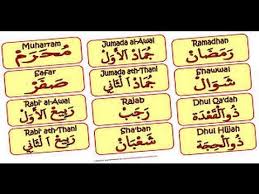 Muharram
مُحَرَّم
Safar
صَفَر
Rabi' al-Awal
رَبِيعُ الأَوَّل
Rabi' ath-Thani
رَبِيعُ الثَّانِي
Jumada al-Awal
جُمَادُ الأَوَّل
Jumada ath-Thani
جُمَادُ الثَّانِي
Rajab
رَجَب
Sha'ban
شَعْبَان
Ramadhan
رَمَضَان
Shauwual
شَوَّال
Dhul Qa'dah
ذُوالْقَعْدَة
Dhul Hijjah
ذُوالْحِجَّة